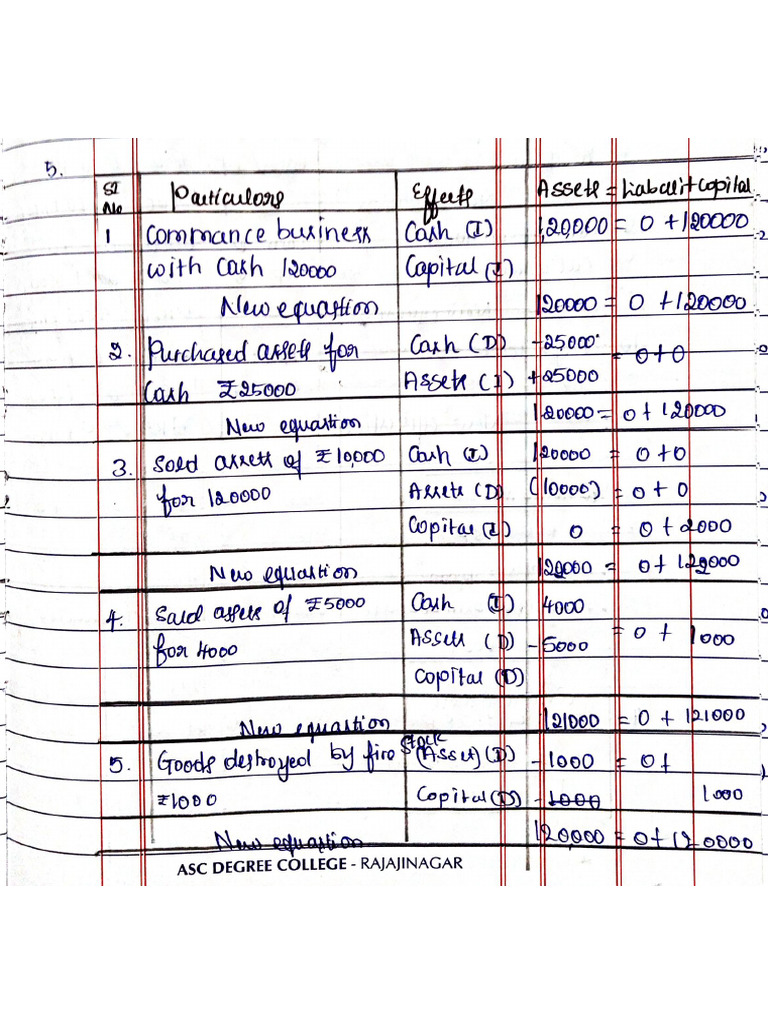 5.
Sl No Particulars Effects Assets = Liabalit Capital
1 Commance business Cash (I) 1,20,000 = 0 + 120000
with cash 120000 Capital (I)
New equastion 120000 = 0 + 120000
2. Purchased assets for Cash (D) - 25,000 = 0 + 0
Cash ₹25000 Assets (I) + 25000
New equastion 120000 = 0 + 120000
3. Sold assets of ₹10,000 Cash (I) 120000 = 0 + 0
for 120000 Assets (D) (10000) = 0 + 0
Copital (I) 0 = 0 + 2000
New equastion = 0 +
4. Sald assets of ₹5000 Cash (I) 4000
for 4000 Assets (D) - 5000 = 0 + 1000
Copital (D)
New equastion 121000 = 0 + 121000
5. Goods destroyed by fire Stock (Asset) (D) - 1000 = 0 +
₹1000 Copital (D) - 1000 1000
New equastion 120,000 = 0 + 120000
ASC DEGREE COLLEGE - RAJAJINAGAR